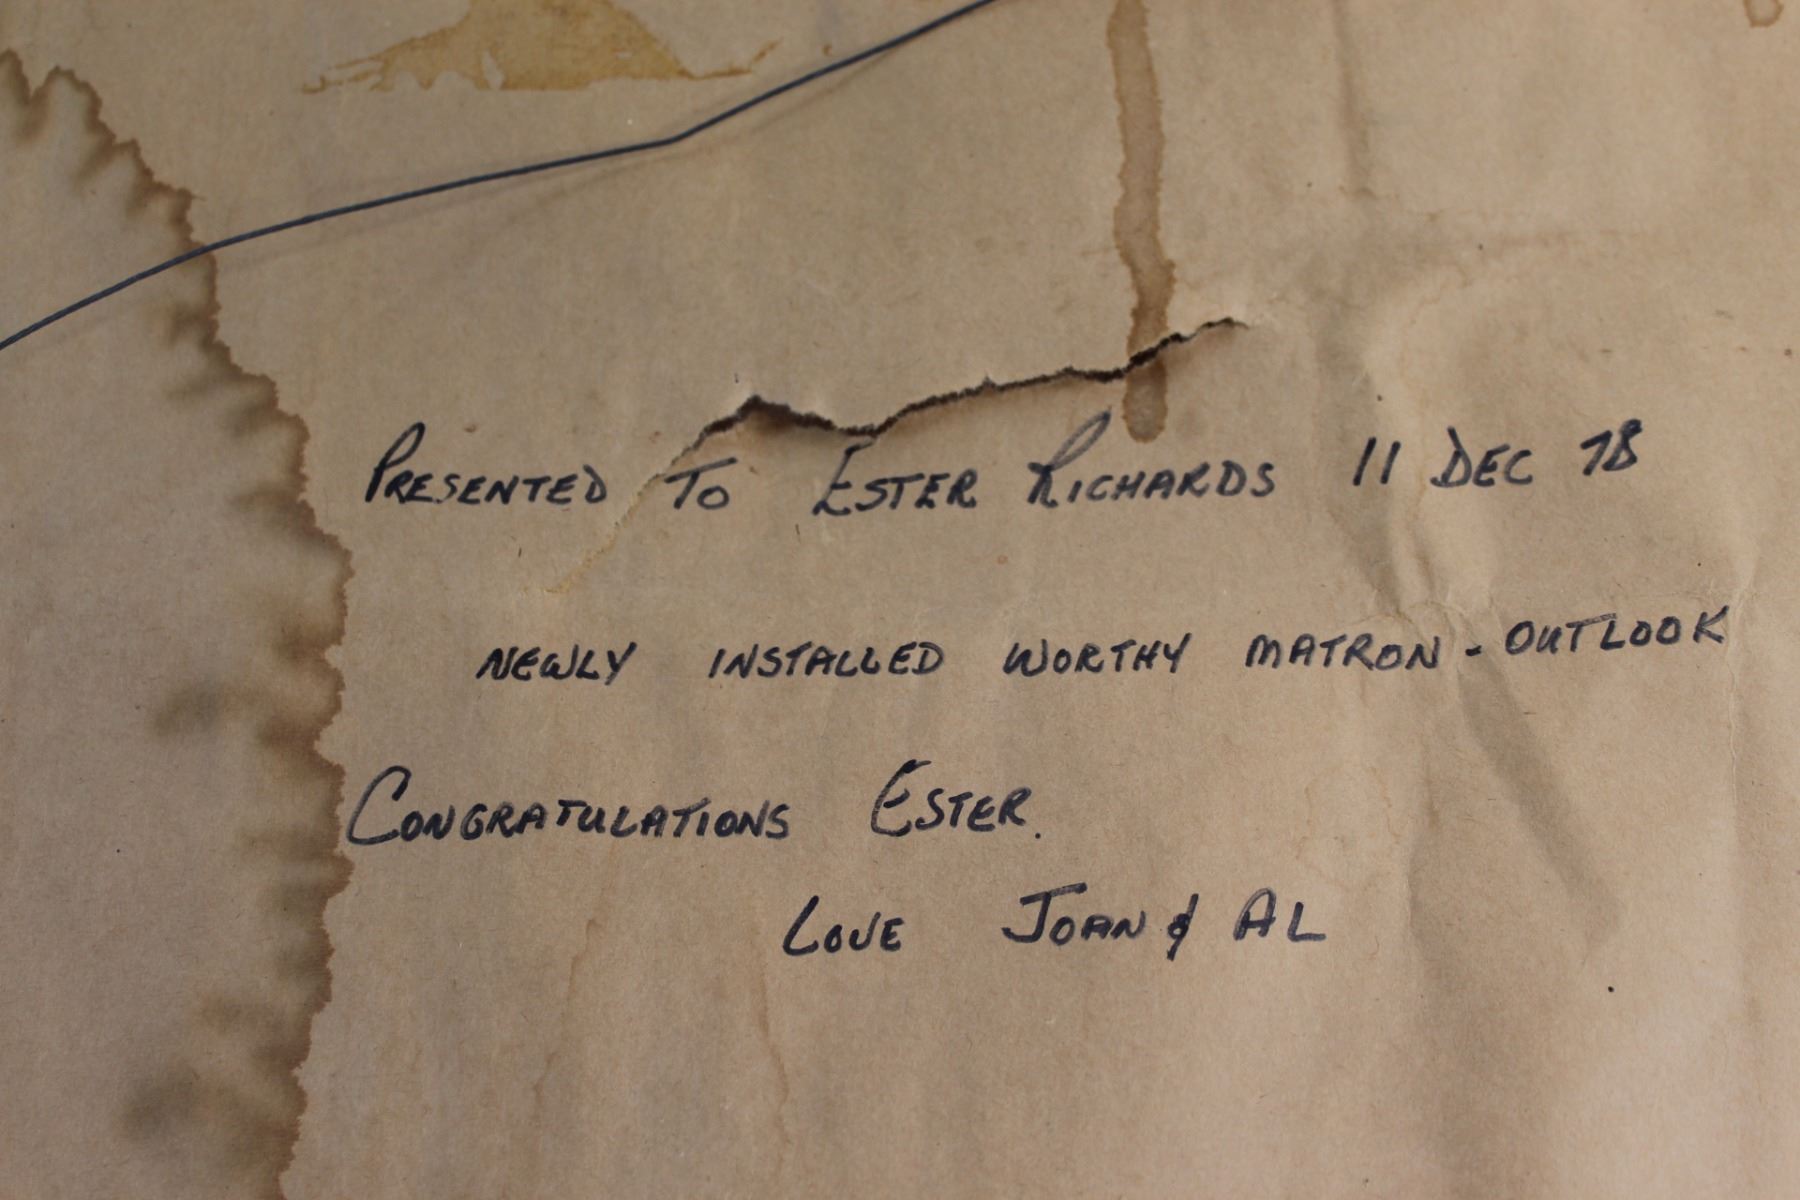 PRESENTED TO ESTER RICHARDS 11 DEC 78
NEWLY INSTALLED WORTHY MATRON - OUTLOOK
CONGRATULATIONS ESTER.
LOVE JOAN & AL